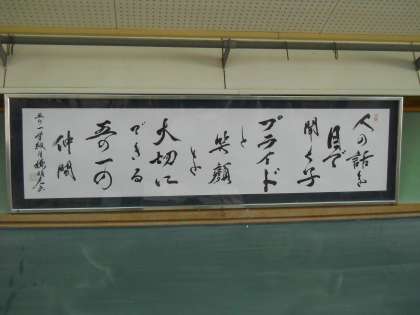 人の話を
目で
聞く子
プライド
と
笑顔
を
大切に
できる
五の一の
仲間